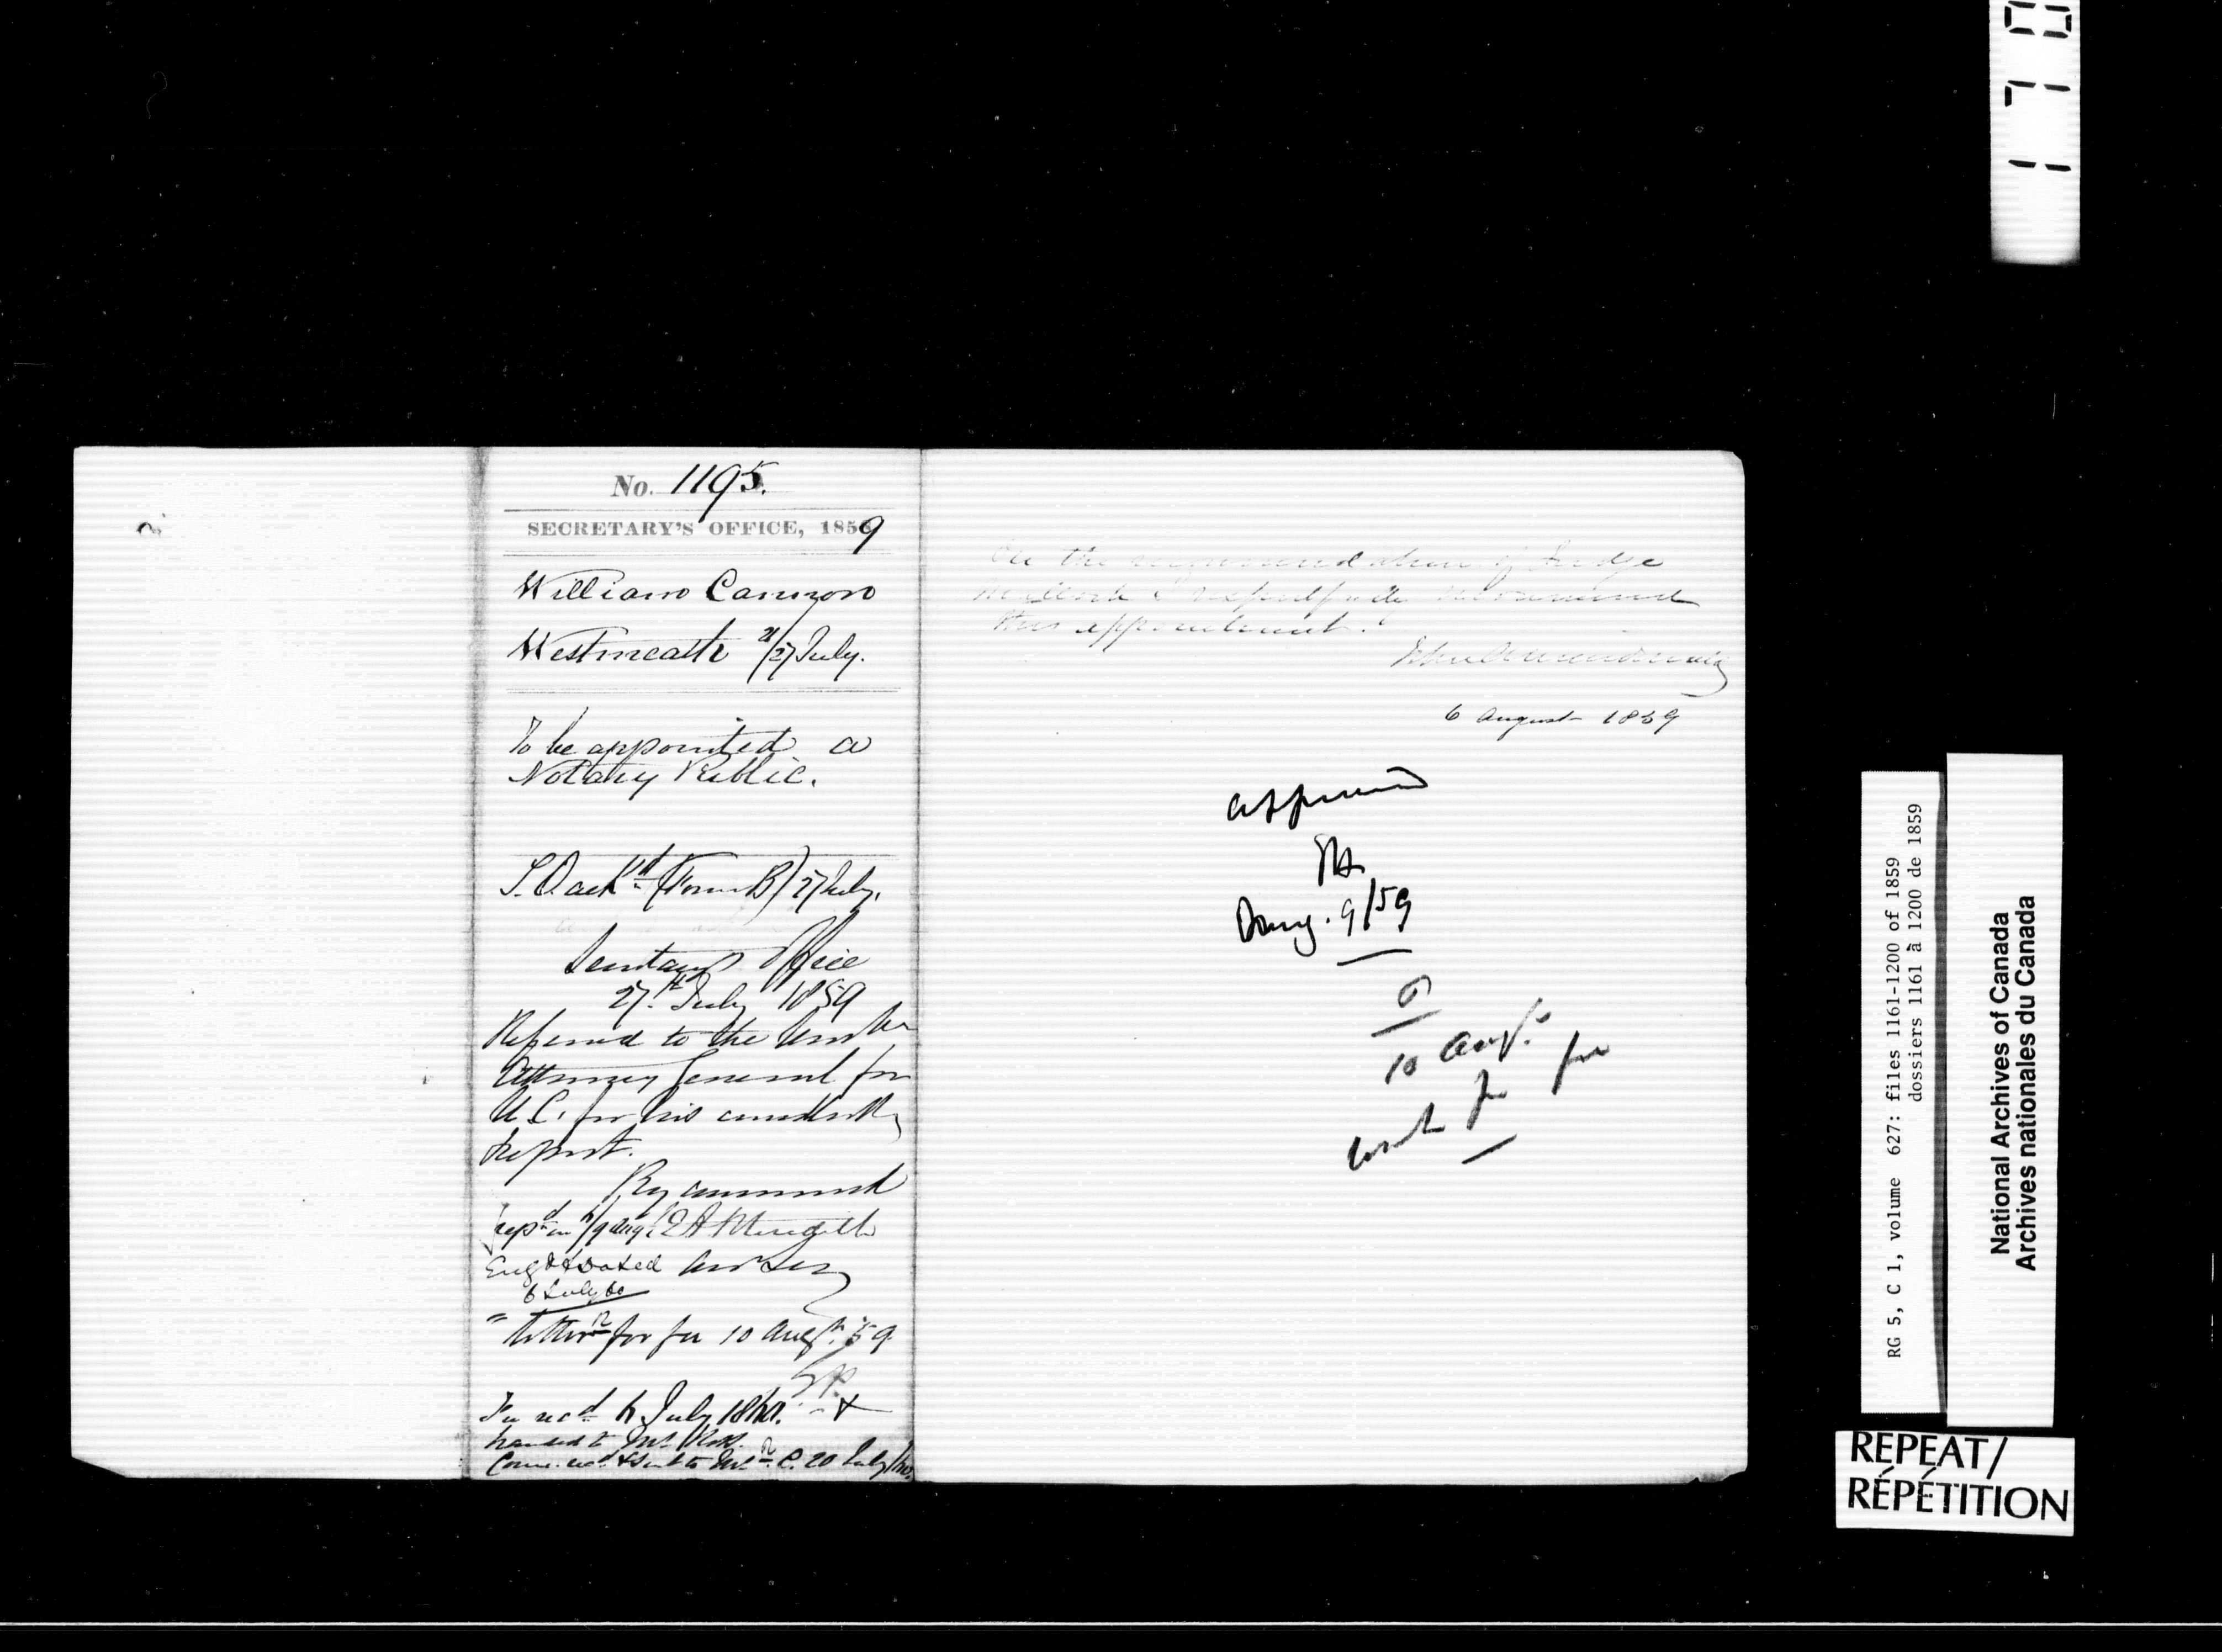 No. 1195.
SECRETARY'S OFFICE, 1859
William Cannon
Westmeath 21/27 July.
To be appointed a
Notary Public.
(Form B) 27 July.
Secretary's Office
27th July 1859
Referred to the
Attorney General for
U.C. for his
Report.
By command
E A Meredith
Engd & dated
6 July 60
for fee 10 Augt 59
Fee recd 6 July 1860. &
handed to Mr Ross.
20 July/60
On the recommendation of Judge
Malloch I respectfully recommend
this appointment.
John A Macdonald
6 August 1859
approved
Aug. 9/59
10 Augt
write for fee
170
RG 5, C 1, volume 627: files 1161-1200 of 1859
dossiers 1161 à 1200 de 1859
National Archives of Canada
Archives nationales du Canada
REPEAT/
RÉPÉTITION